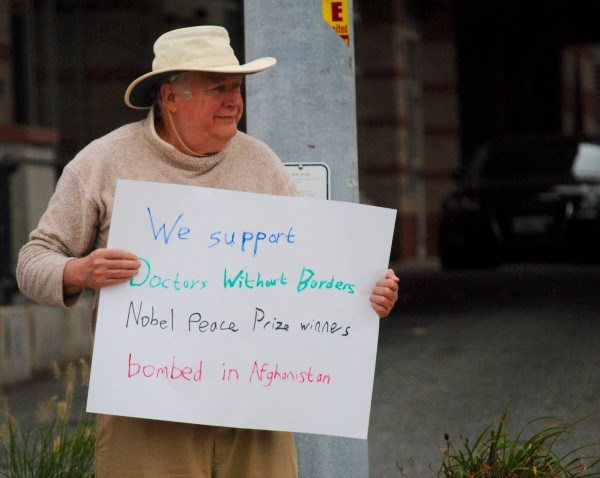 E
ited
We support
Doctors Without Borders
Nobel Peace Prize winners
bombed in Afghanistan